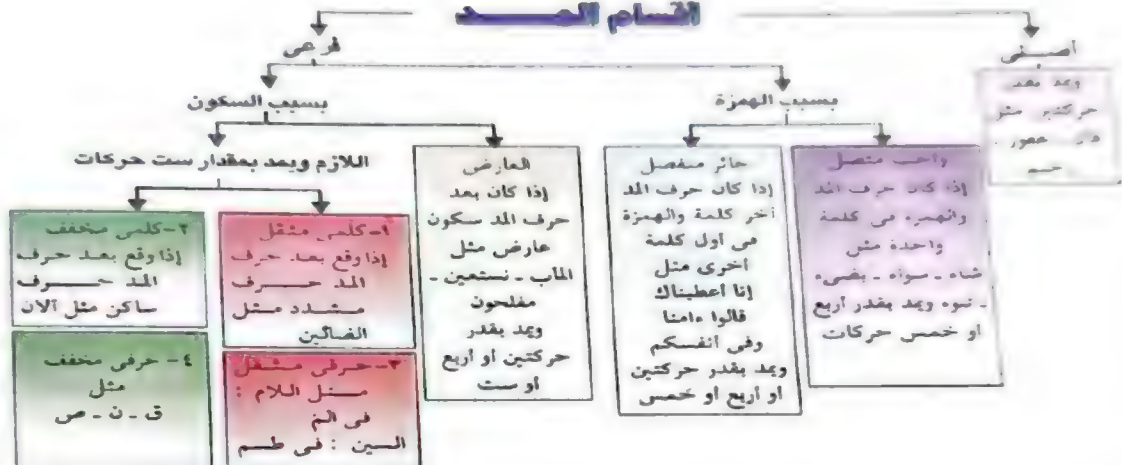 اقسام المد
أصلى
ويمد بقدر
حركتين مثل
فرعى
بسبب الهمزة
واجب متصل
إذا كان حرف المد
والهمزه فى كلمة
واحدة مثل
شاء - سواء - يضىء
- نبوء ويمد بقدر أربع
او خمس حركات
جائز منفصل
إذا كان حرف المد
آخر كلمة والهمزة
فى اول كلمة
أخرى مثل
إنا أعطيناك
قالوا ءامنا
وفى أنفسكم
ويمد بقدر حركتين
او أربع او خمس
بسبب السكون
العارض
إذا كان بعد
حرف المد سكون
عارض مثل
المآب - نستعين -
مفلحون
ويمد بقدر
حركتين او أربع
او ست
اللازم ويمد بمقدار ست حركات
١- كلمى مثقل
إذا وقع بعد حرف
المد حرف
مشدد مثل
الضالين
٢- كلمى مخفف
إذا وقع بعد حرف
المد حرف
ساكن مثل آلان
٣- حرفى مثقل
مثل اللام :
فى الم
السين : فى طسم
٤- حرفى مخفف
مثل
ق - ن - ص